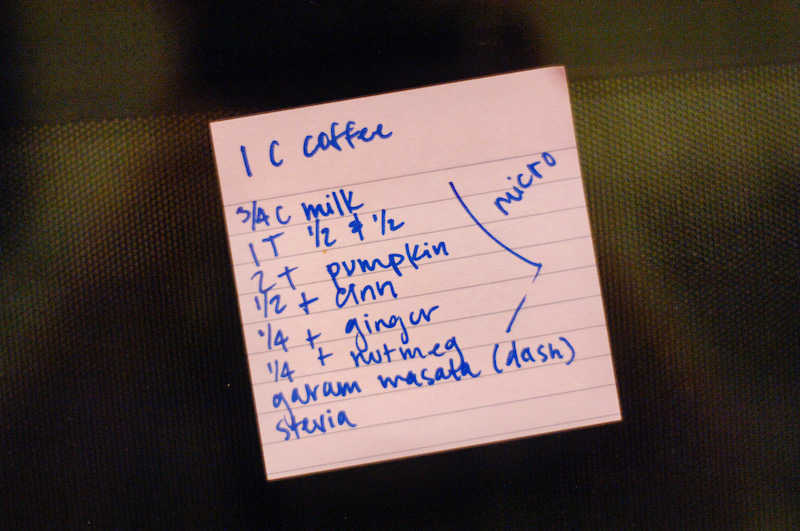 1 C coffee
3/4 C milk
1 T 1/2 & 1/2
2 t pumpkin
1/2 t cinn
1/4 t ginger
1/4 t nutmeg
garam masala (dash)
stevia
micro